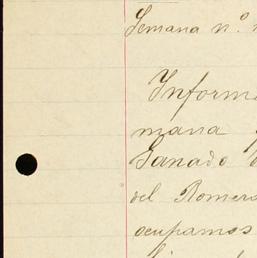 Semana n.º
Informa
mana
Ganado
del Romer
ocupamos